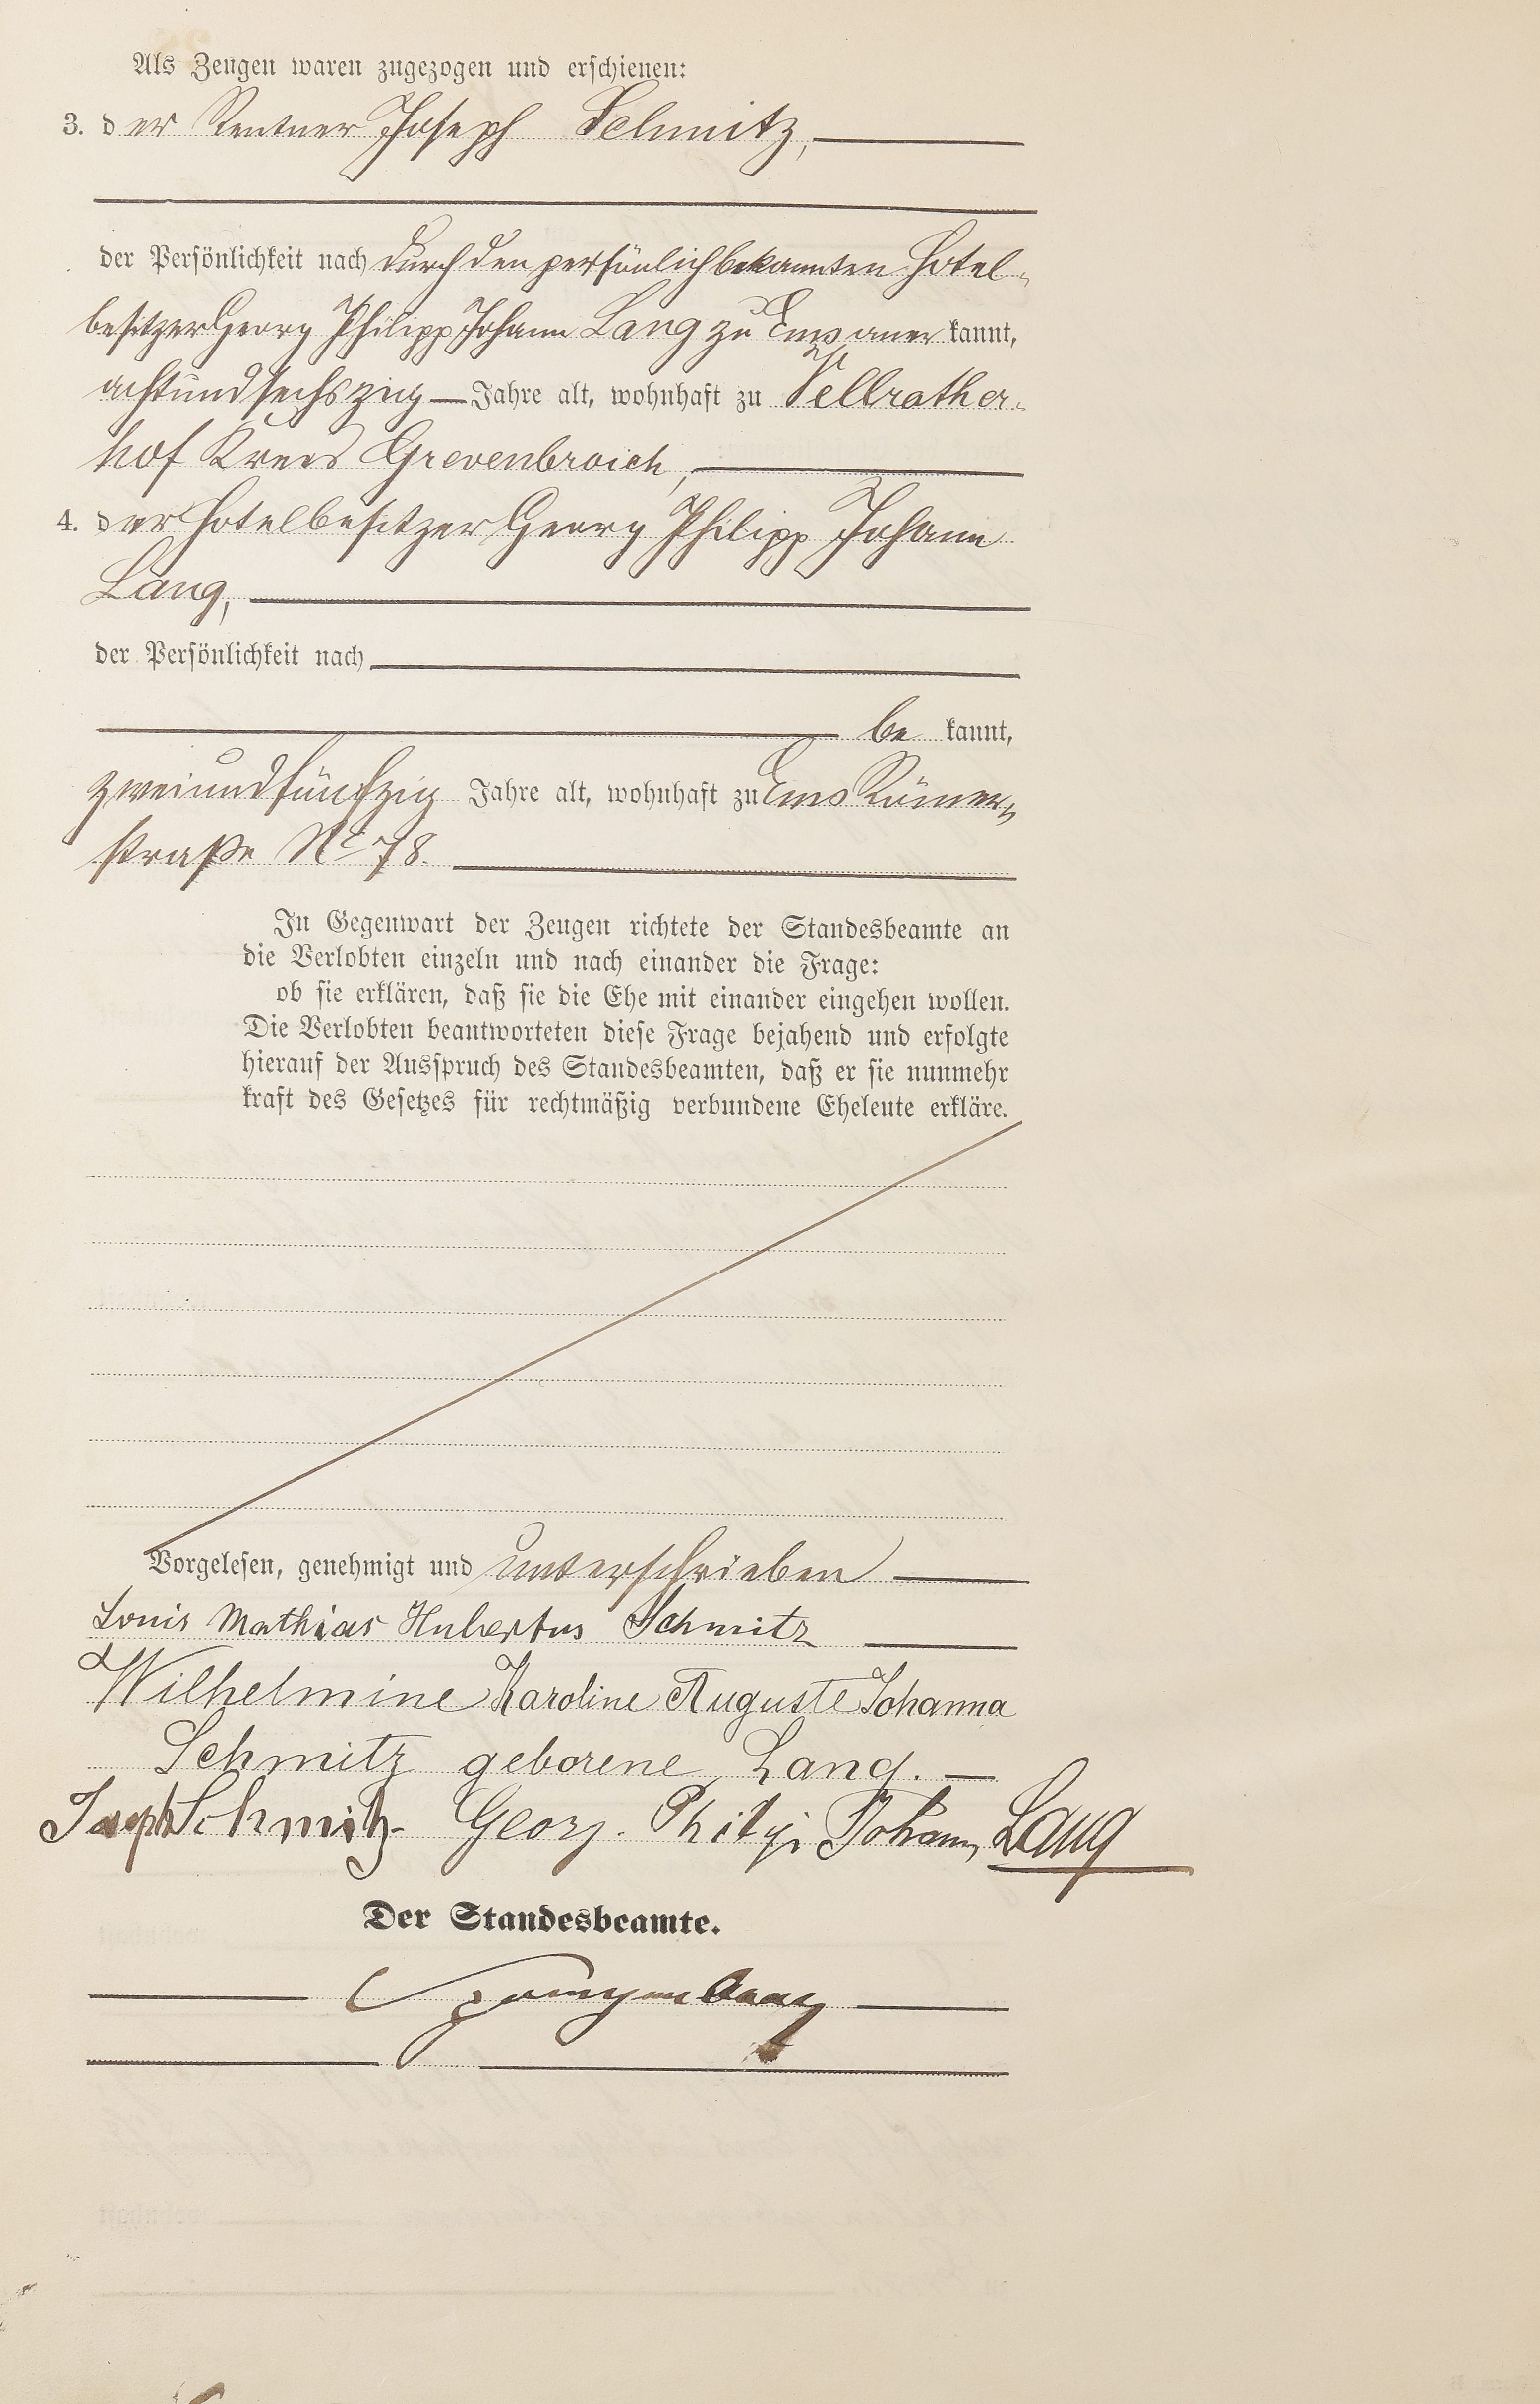 Als Zeugen waren zugezogen und erschienen:
3. der Rentner Joseph Schmitz,
der Persönlichkeit nach durch den persönlich bekannten Hotel-
besitzer Georg Philipp Johann Lang zu Ems anerkannt,
achtundsechszig Jahre alt, wohnhaft zu Vellrather-
hof Kreis Grevenbroich,
4. der Hotelbesitzer Georg Philipp Johann
Lang,
der Persönlichkeit nach
be kannt,
zweiundfünfzig Jahre alt, wohnhaft zu Ems Römer-
straße No 78.
In Gegenwart der Zeugen richtete der Standesbeamte an
die Verlobten einzeln und nach einander die Frage:
ob sie erklären, daß sie die Ehe mit einander eingehen wollen.
Die Verlobten beantworteten diese Frage bejahend und erfolgte
hierauf der Ausspruch des Standesbeamten, daß er sie nunmehr
kraft des Gesetzes für rechtmäßig verbundene Eheleute erkläre.
Vorgelesen, genehmigt und unterschrieben
Louis Mathias Hubertus Schmitz
Wilhelmine Karoline Auguste Johanna
Schmitz geborene Lang.
Joseph Schmitz Georg Philipp Johann Lang
Der Standesbeamte.